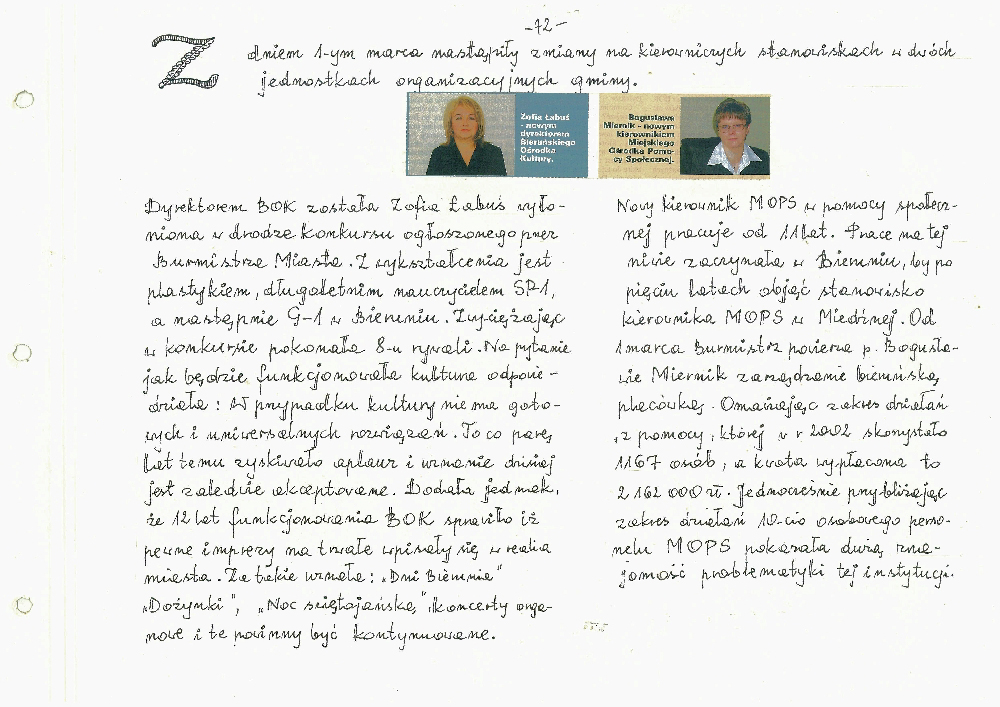 -72-
Z dniem 1-ym marca nastąpiły zmiany na kierowniczych stanowiskach w dwóch
jednostkach organizacyjnych gminy.
Zofia Łabuś
- nowym
dyrektorem
Bieruńskiego
Ośrodka
Kultury.
Bogusława
Miernik - nowym
kierownikiem
Miejskiego
Ośrodka Pomo-
cy Społecznej.
Dyrektorem BOK została Zofia Łabuś wyło-
niona w drodze konkursu ogłoszonego przez
Burmistrza Miasta. Z wykształcenia jest
plastykiem, długoletnim nauczycielem SP-1,
a następnie G-1 w Bieruniu. Zwyciężając
w konkursie pokonała 8-u rywali. Na pytanie
jak będzie funkcjonowała kultura odpowie-
działa: W przypadku kultury nie ma goto-
wych i uniwersalnych rozwiązań. To co parę
lat temu zyskiwało aplauz i uznanie dzisiaj
jest zaledwie akceptowane. Dodała jednak,
że 12 lat funkcjonowania BOK sprawiło iż
pewne imprezy na trwałe wpisały się w realia
miasta. Za takie uznała: „Dni Bierunia"
„Dożynki", „Noc świętojańska", koncerty orga-
nowe i te powinny być kontynuowane.
Nowy kierownik MOPS w pomocy społecz-
nej pracuje od 11 lat. Pracę na tej
niwie zaczynała w Bieruniu, by po
pięciu latach objąć stanowisko
kierownika MOPS w Miedźnej. Od
1 marca Burmistrz powierza p. Bogusła-
wie Miernik zarządzanie bieruńską
placówką. Omawiając zakres działań
„z pomocy, której w r 2002 skorzystało
1167 osób, a kwota wypłacona to
2 162 000 zł. Jednocześnie przybliżając
zakres działań 10-cio osobowego perso-
nelu MOPS pokazała dużą zna-
jomość problematyki tej instytucji.